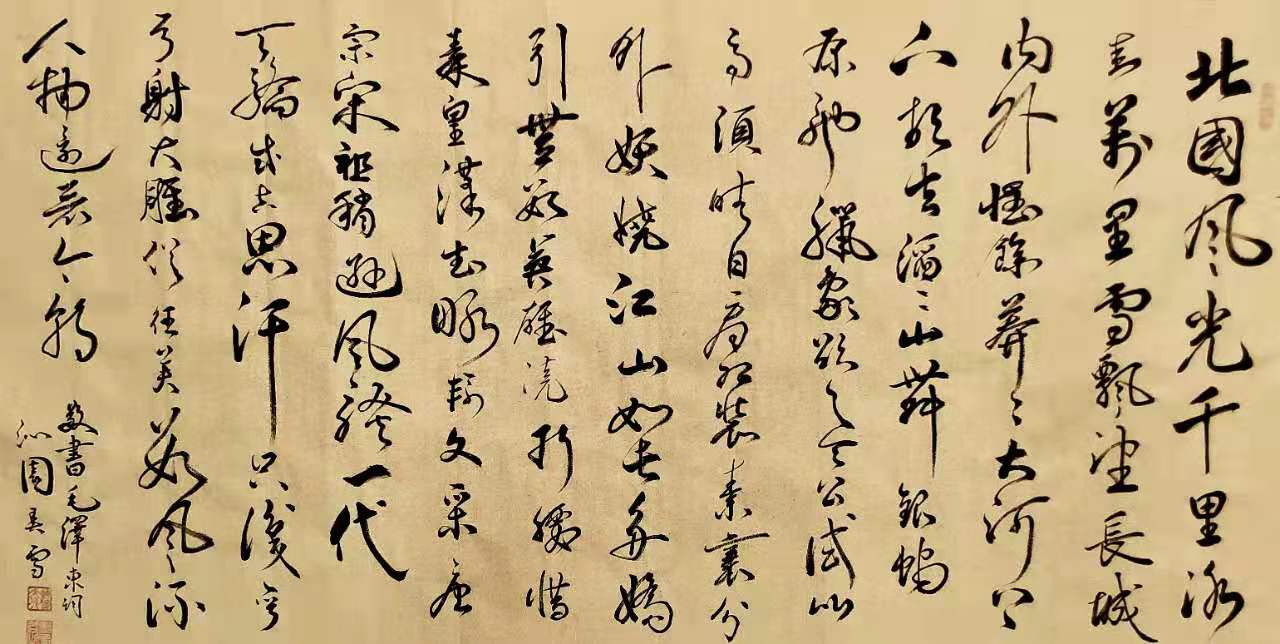 北國风光千里冰
封萬里雪飄望長城
内外惟餘莽〻大河上
下頓失滔〻山舞銀蛇
原馳臘象欲与天公試比
高須晴日看红裝素裹分
外妖嬈江山如此多嬌
引無數英雄競折腰惜
秦皇漢武略輸文采唐
宗宋祖稍遜风騷一代
天驕成吉思汗只識彎
弓射大雕俱往矣數风流
人物還看今朝
敬書毛澤東詞
沁園春雪